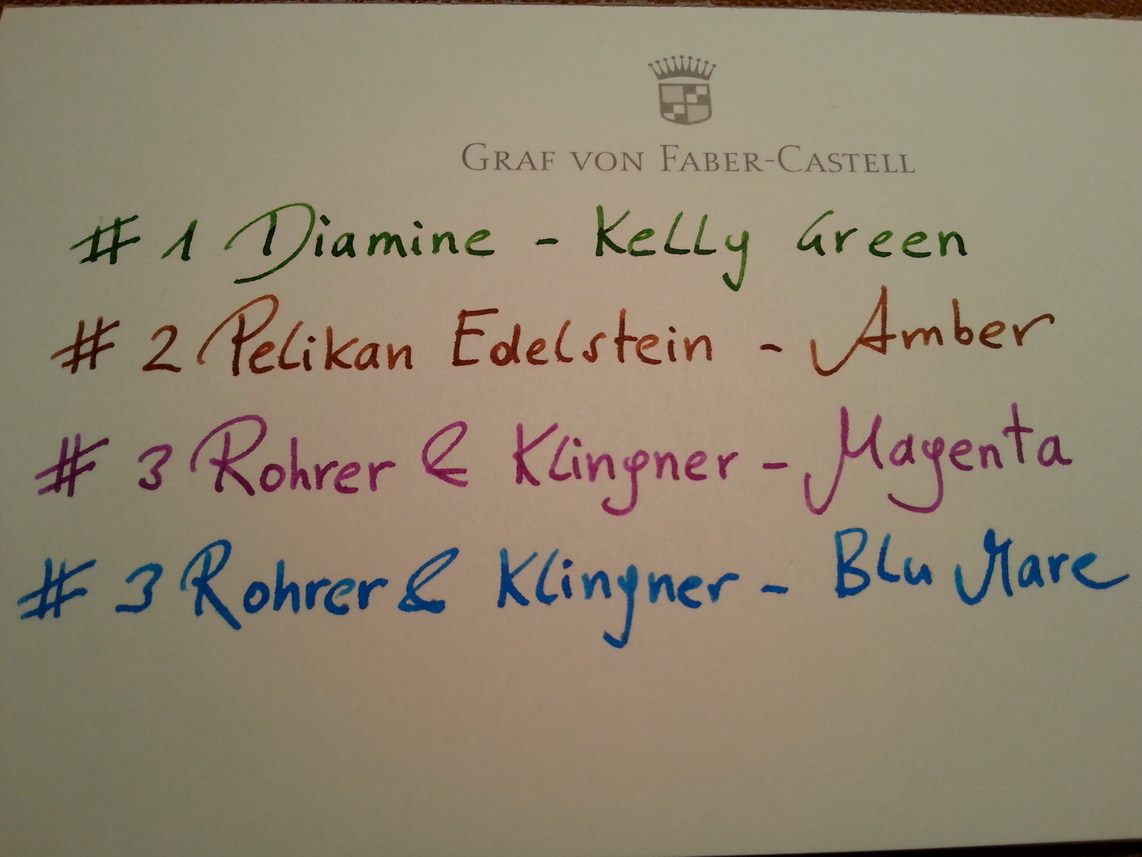 GRAF VON FABER-CASTELL
# 1 Diamine - Kelly Green
# 2 Pelikan Edelstein - Amber
# 3 Rohrer & Klingner - Magenta
# 3 Rohrer & Klingner - Blu Mare